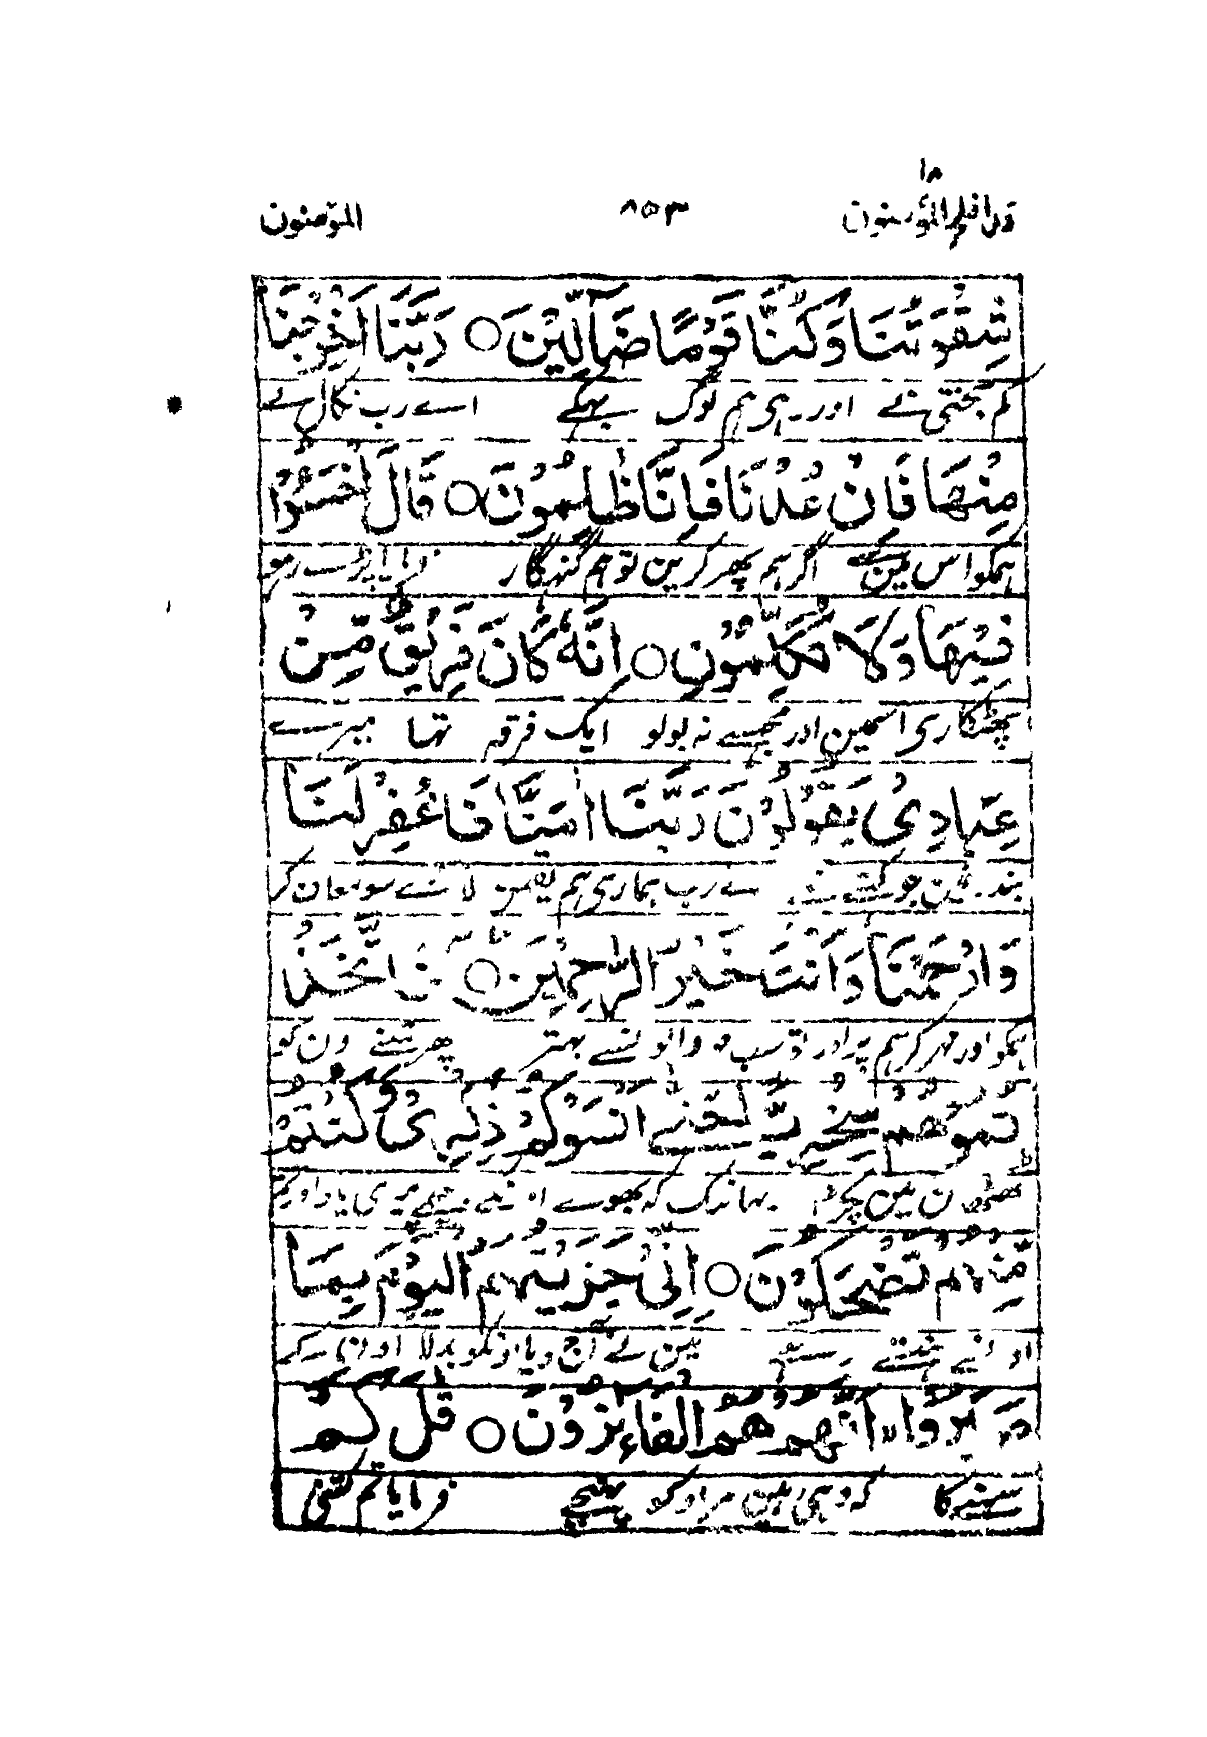 ١٨
قد افلح المؤمنون ٨٥٣ المؤمنون
شِقْوَتُنَا وَكُنَّا قَوْمًا ضَآلِّيْنَ ○ رَبَّنَا اَخْرِجْنَا
کم بختی نے اور رہی ہم لوگ بہکے اے رب نکال لے
مِنْهَا فَاِنْ عُدْنَا فَاِنَّا ظٰلِمُوْنَ ○ قَالَ اخْسَئُوْا
ہمکو اس مین سے اگر ہم پھر کرین تو ہم گنہگار فرمایا پڑے رہو
فِيْهَا وَلَا تُكَلِّمُوْنِ ○ اِنَّهٗ كَانَ فَرِيْقٌ مِّنْ
پھٹکاری اسمین اور مجھسے نہ بولو ایک فرقہ تھا میرے
عِبَادِيْ يَقُوْلُوْنَ رَبَّنَا اٰمَنَّا فَاغْفِرْ لَنَا
مین جو کہتے تھے اے رب ہماری ہم یقین لائے سو معاف کر
وَارْحَمْنَا وَاَنْتَ خَيْرُ الرّٰحِمِيْنَ ○ فَاتَّخَذْ
ہمکو اور مہر کر ہم پر اور تو سب والونسے بہتر پھر تمنے ون کو
تُمُوْهُمْ سِخْرِيًّا حَتّٰى اَنْسَوْكُمْ ذِكْرِيْ وَكُنْتُمْ
مین پکڑا یہانتک کہ بھولے میری یاد اور تم
مِّنْهُمْ تَضْحَكُوْنَ ○ اِنِّيْ جَزَيْتُهُمُ الْيَوْمَ بِمَا
اونسے ہنستے رہے مین نے آج دیا اونکو بدلا اونکے
صَبَرُوْا اَنَّهُمْ هُمُ الْفَآئِزُوْنَ ○ قٰلَ كَمْ
سہنے کا کہ وہی ہین مراد کو پہنچے فرمایا تم کتنی